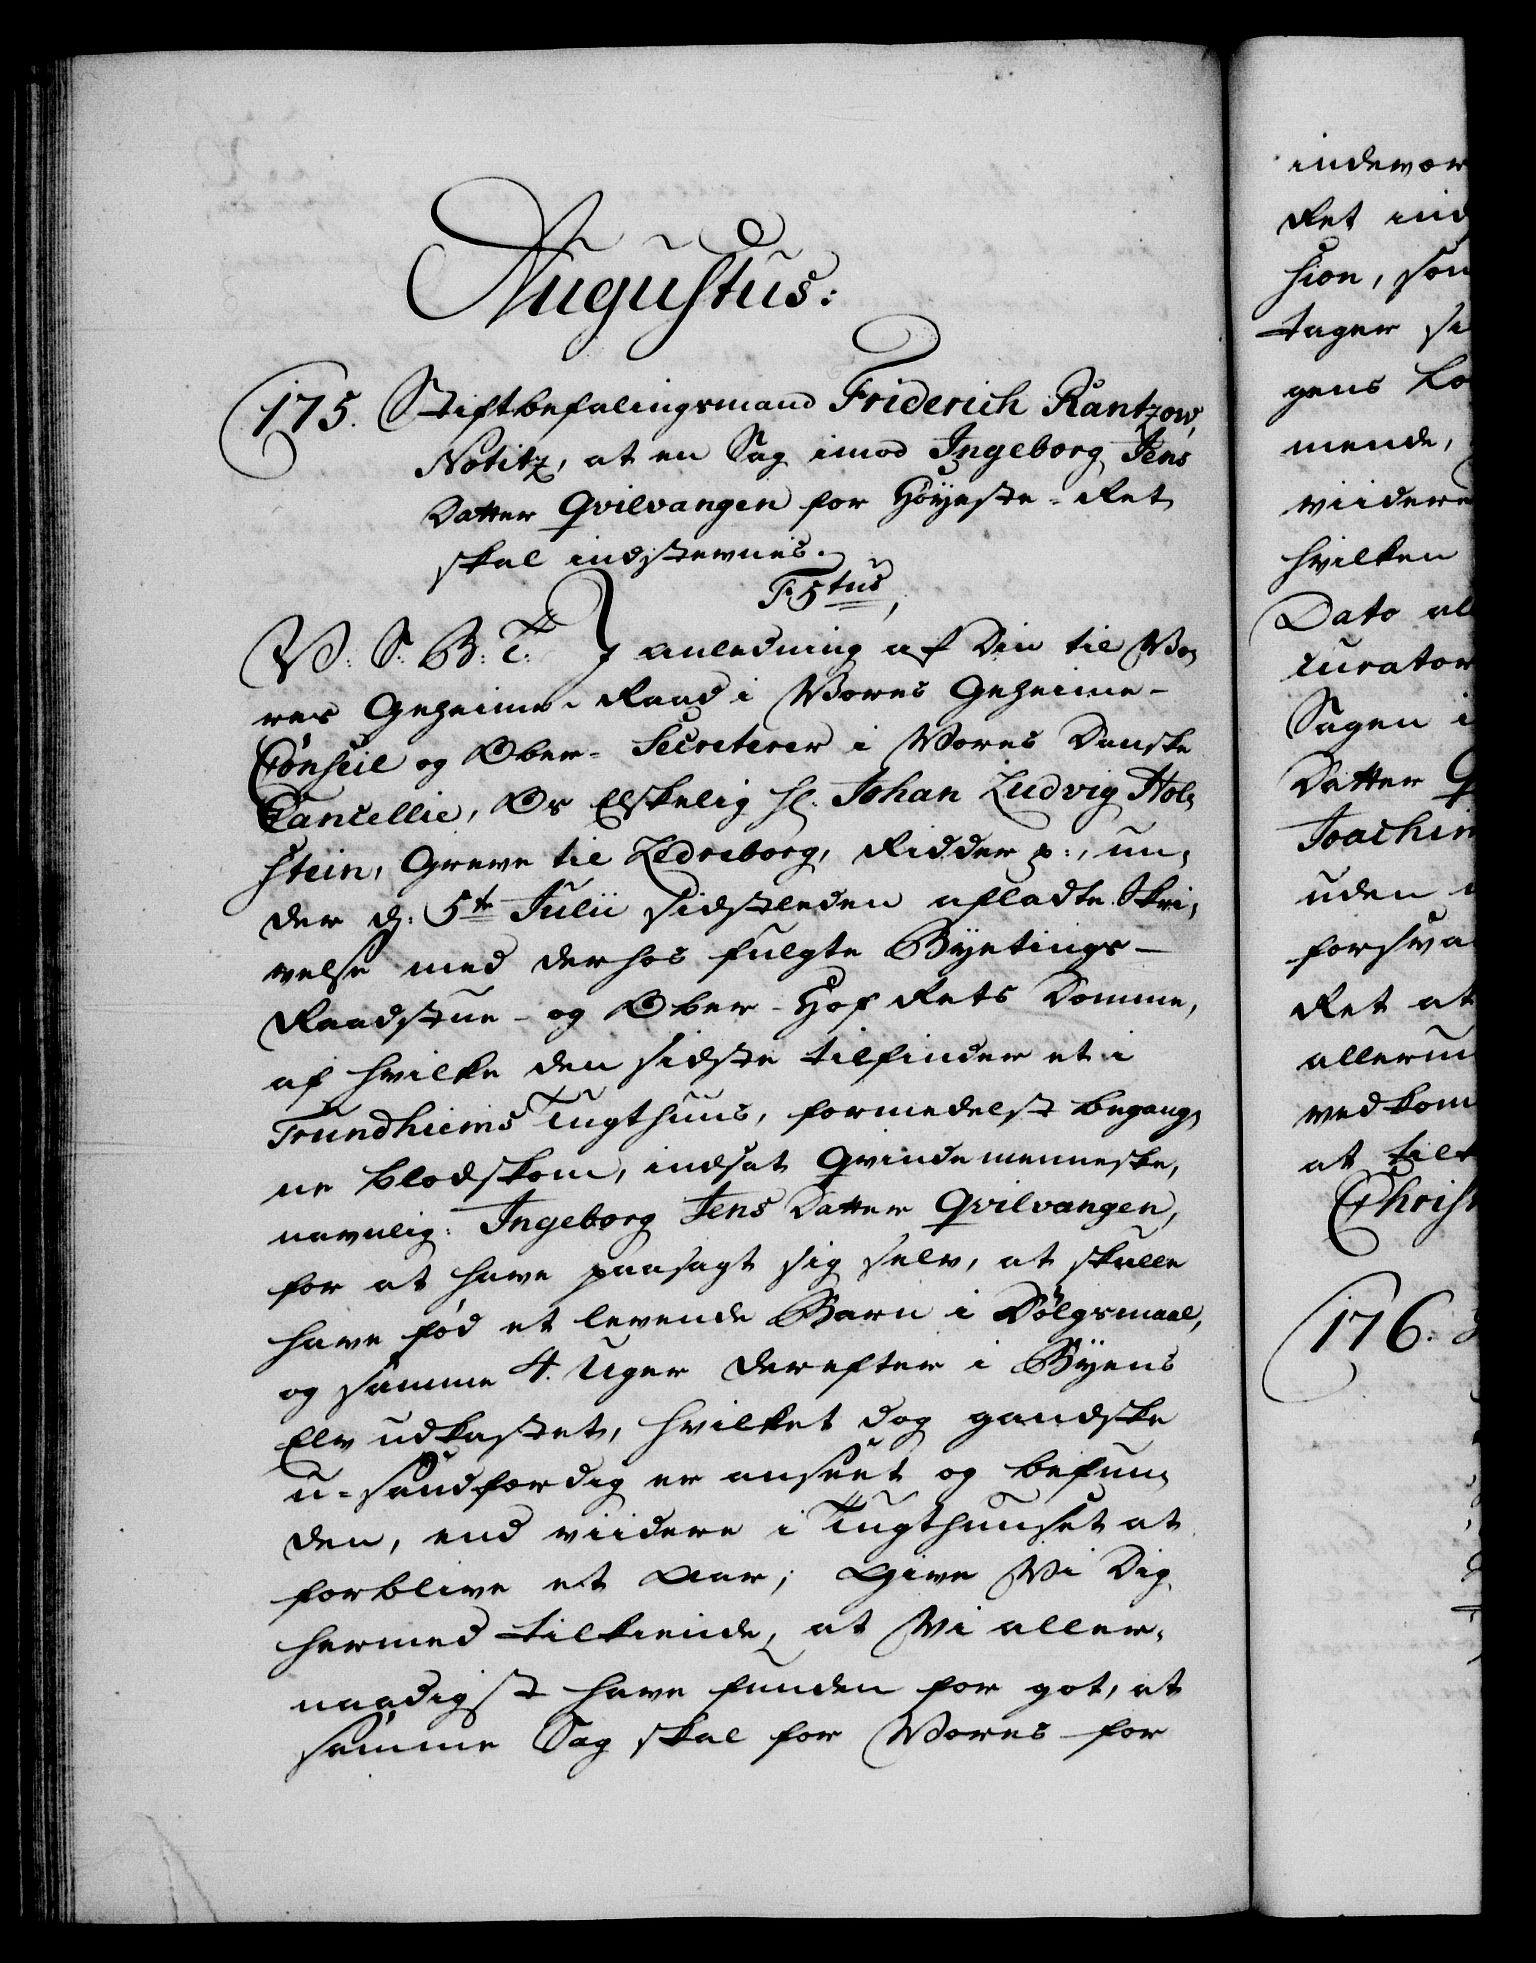 Augustus:
175. Stiftbefalingsmand Friderich Rantzow,
Notitz, at en Sag imod Ingeborg Jens
Datter Qvilvangen for Høyeste-Ret
skal indstevnes.
F: 5tus,
W: S: B: T: I anledning af Din til Vo,
res Geheime-Raad i Vores Geheime-
Conseil og Ober-Secreterer i Vores Danske
Cancellie, Os Elskelig Hr. Johan Ludvig Hol,
stein, Greve til Ledreborg, Ridder p:, un,
der d: 5te Julii sidstleden afladte Skri,
velse med derhos fulgte Byetings-
Raadstue- og Ober-Hof Rets Domme,
af hvilke den sidste tilfinder et i
Trundhiems Tugthuus, formedelst begang,
ne blodskam, indsat Qvindemenneske,
navnlig: Ingeborg Jens Datter Qvilvangen,
for at have paasagt sig selv, at skulle
have fød et levende Barn i Dølgsmaal,
og samme 4. Uger derefter i Byens
Elv udkastet, hvilket dog gandske
u-sandfærdig er anseet og befun,
den, end viidere i Tugthuuset at
forblive et Aar; Give Vi Dig
hermed tilkiende, at Vi aller,
naadigst have funden for got, at
samme Sag skal for Vores for
indevær
Ret ind
sion, son
tager si
gens Lo
mende,
viidere
hvilken
Dato al
curator
Sagen i
Datter Q
Joachim
uden
forsva
Ret at
allerun
vedkom
at tilt
Christ
176.